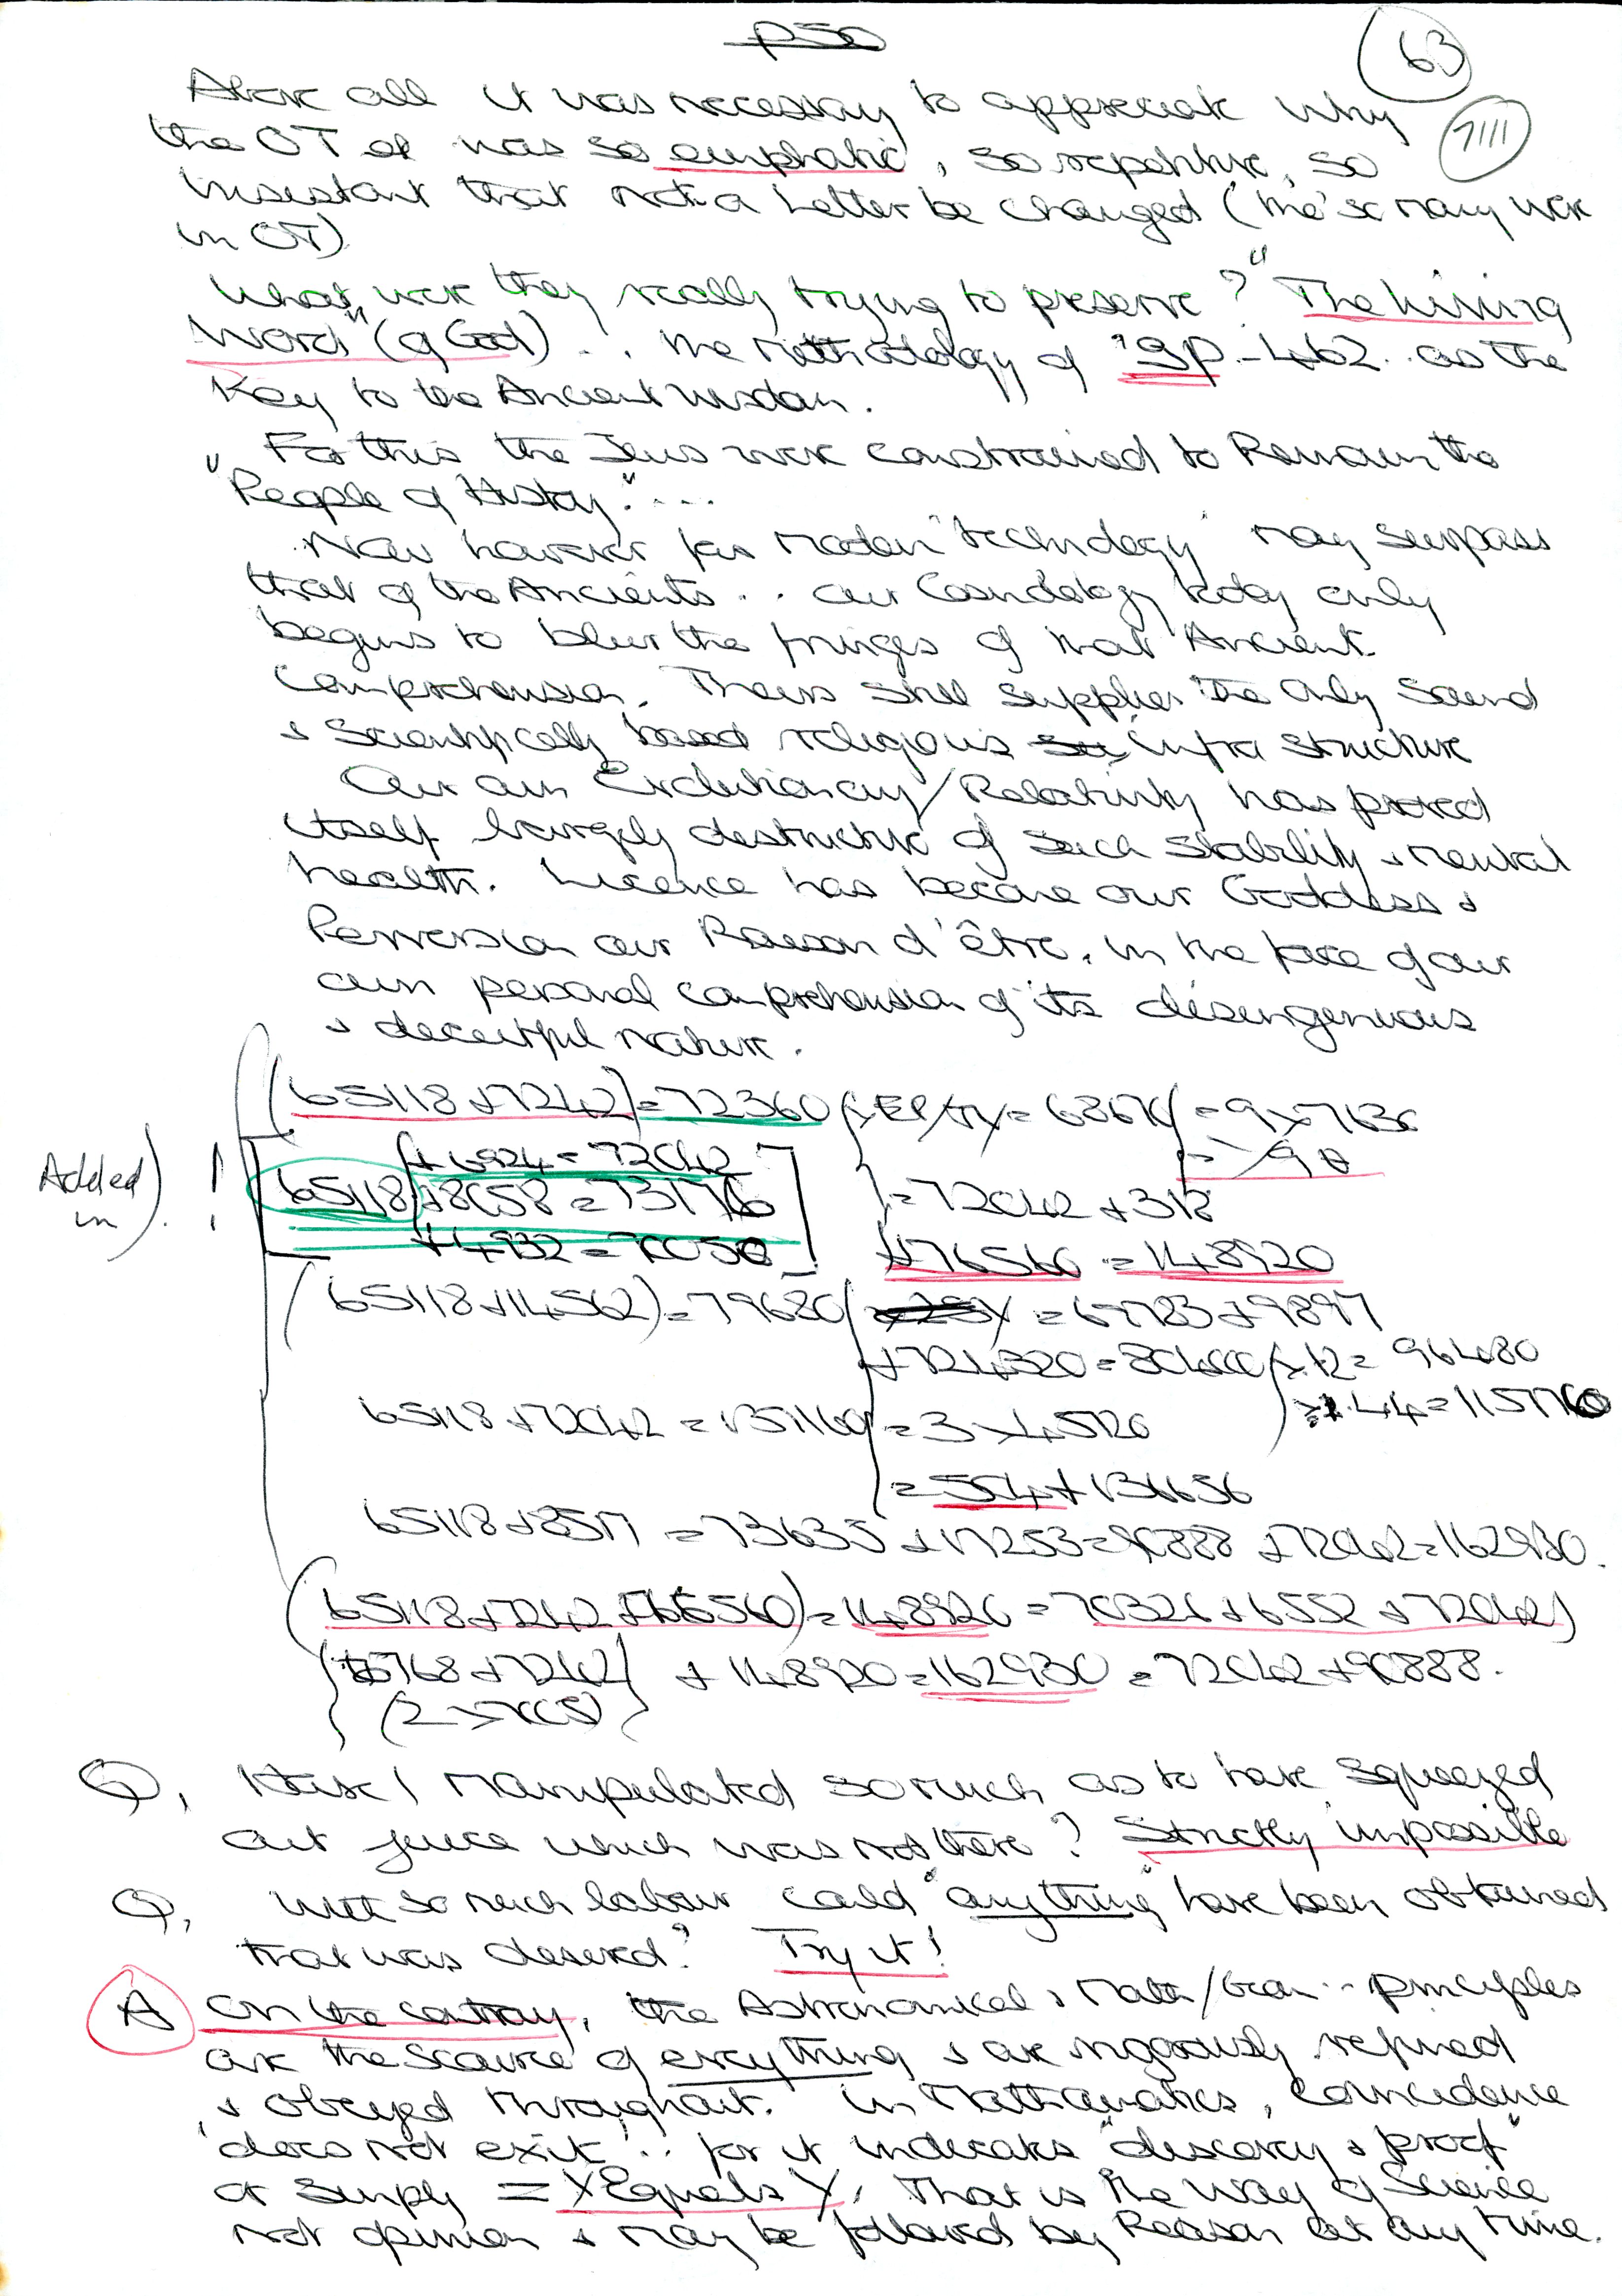 p50
63
Above all it was necessary to appreciate why
7111
the OT et was so emphatic, so repetitive, so
insistant that not a letter be changed (the' so many were
in OT)
What were they really trying to preserve? "The Living
Word" (of God) .. the methodology of "gp - 462 .. as the
Key to the Ancient Wisdom.
For this the Jews were constrained to Remain the
"People of History." ...
Now however far modern "technology" may surpass
that of the Ancients .. our Cosmology today only
begins to blur the fringes of that Ancient
Comprehension. Theirs still supplies the only Sound
& Scientifically based religious infra structure
Our own Evolutionary/Relativity has proved
itself largely destructive of such stability & mental
health. Licence has become our Goddess &
Perversion our Raison d'être, in the face of our
own personal comprehension of its disengenuous
& deceitful nature.
(65118 + 7242) = 72360 = 9 x 7636
Added in) !
+ 6924 = 72042
65118 + 8058 = 73176 = 72042 + 318
+ 4932 = 70050 + 76560 = 148920
(65118 + 14562) = 79680 = 69783 + 9897
+ 724320 = 804000 x .12 = 96480
65118 + 72042 = 135160 = 3 x 45120 x 1.44 = 115776
= 504 + 136656
65118 + 8517 = 73635 + 17253 = 90888 + 72042 = 162930.
(65118 + 7242 + 76560) = 148920 = 70326 + 6552 + 72042)
(6768 + 7242) + 148920 = 162930 = 72042 + 90888.
(2 x 7005)
Q, Have I manipulated so much as to have squeezed
out juice which was not there? Strictly impossible
Q, With so much labour could "anything" have been obtained
that was desired? Try it!
A On the contray, the Astronomical & Math/Geom .. principles
are the source of everything & are rigorously refined
& obeyed throughout. In Mathematics, coincidence
'does not exit' .. for it indicates "discovery & proof"
or simply = X Equals Y. That is the Way of Science
not opinion & may be followed by Reason at any time.